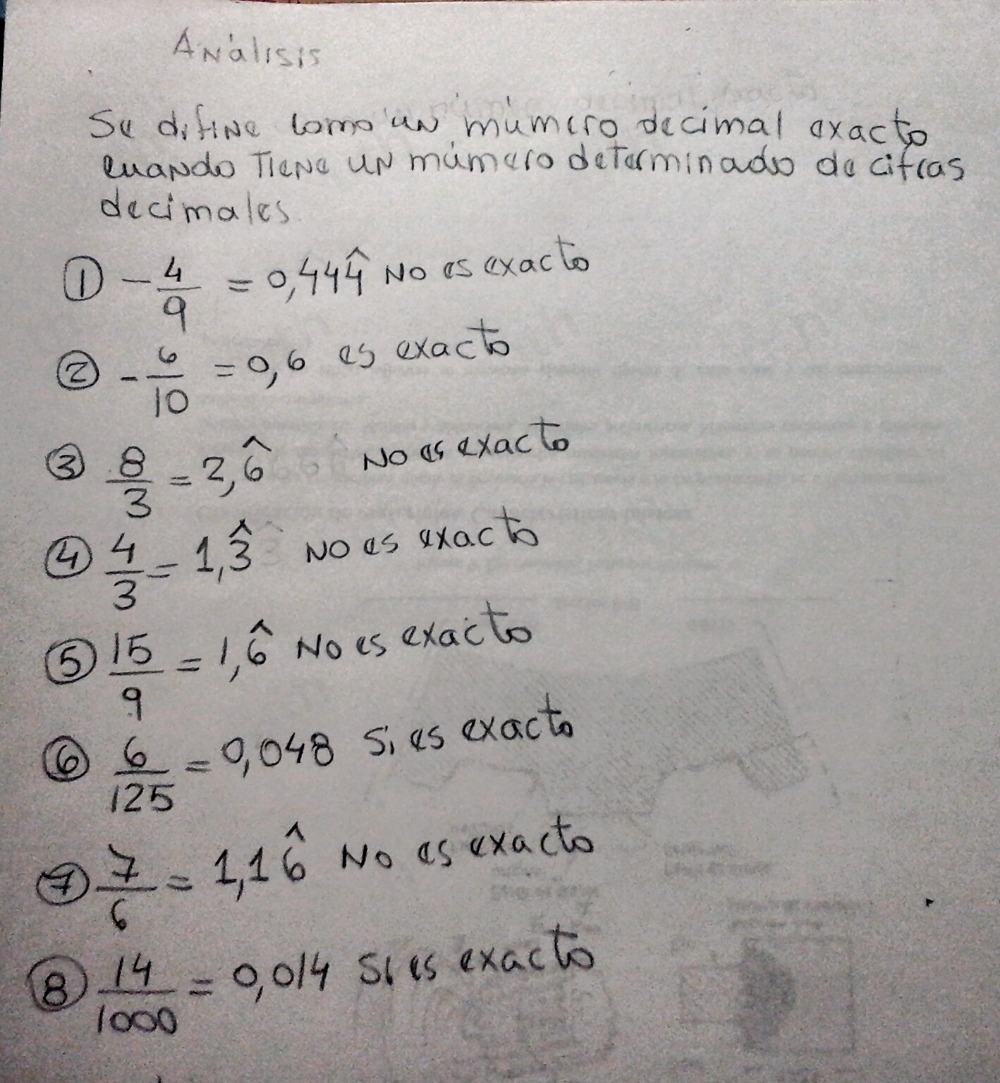 Análisis
Se difine como un múmero decimal exacto
cuando Tiene un múmero determinado de cifras
decimales.
① -4/9 = 0,444̂ No es exacto
② -6/10 = 0,6 es exacto
③ 8/3 = 2,6̂ No es exacto
④ 4/3 = 1,3̂ No es exacto
⑤ 15/9 = 1,6̂ No es exacto
⑥ 6/125 = 0,048 Si es exacto
⑦ 7/6 = 1,16̂ No es exacto
⑧ 14/1000 = 0,014 Si es exacto